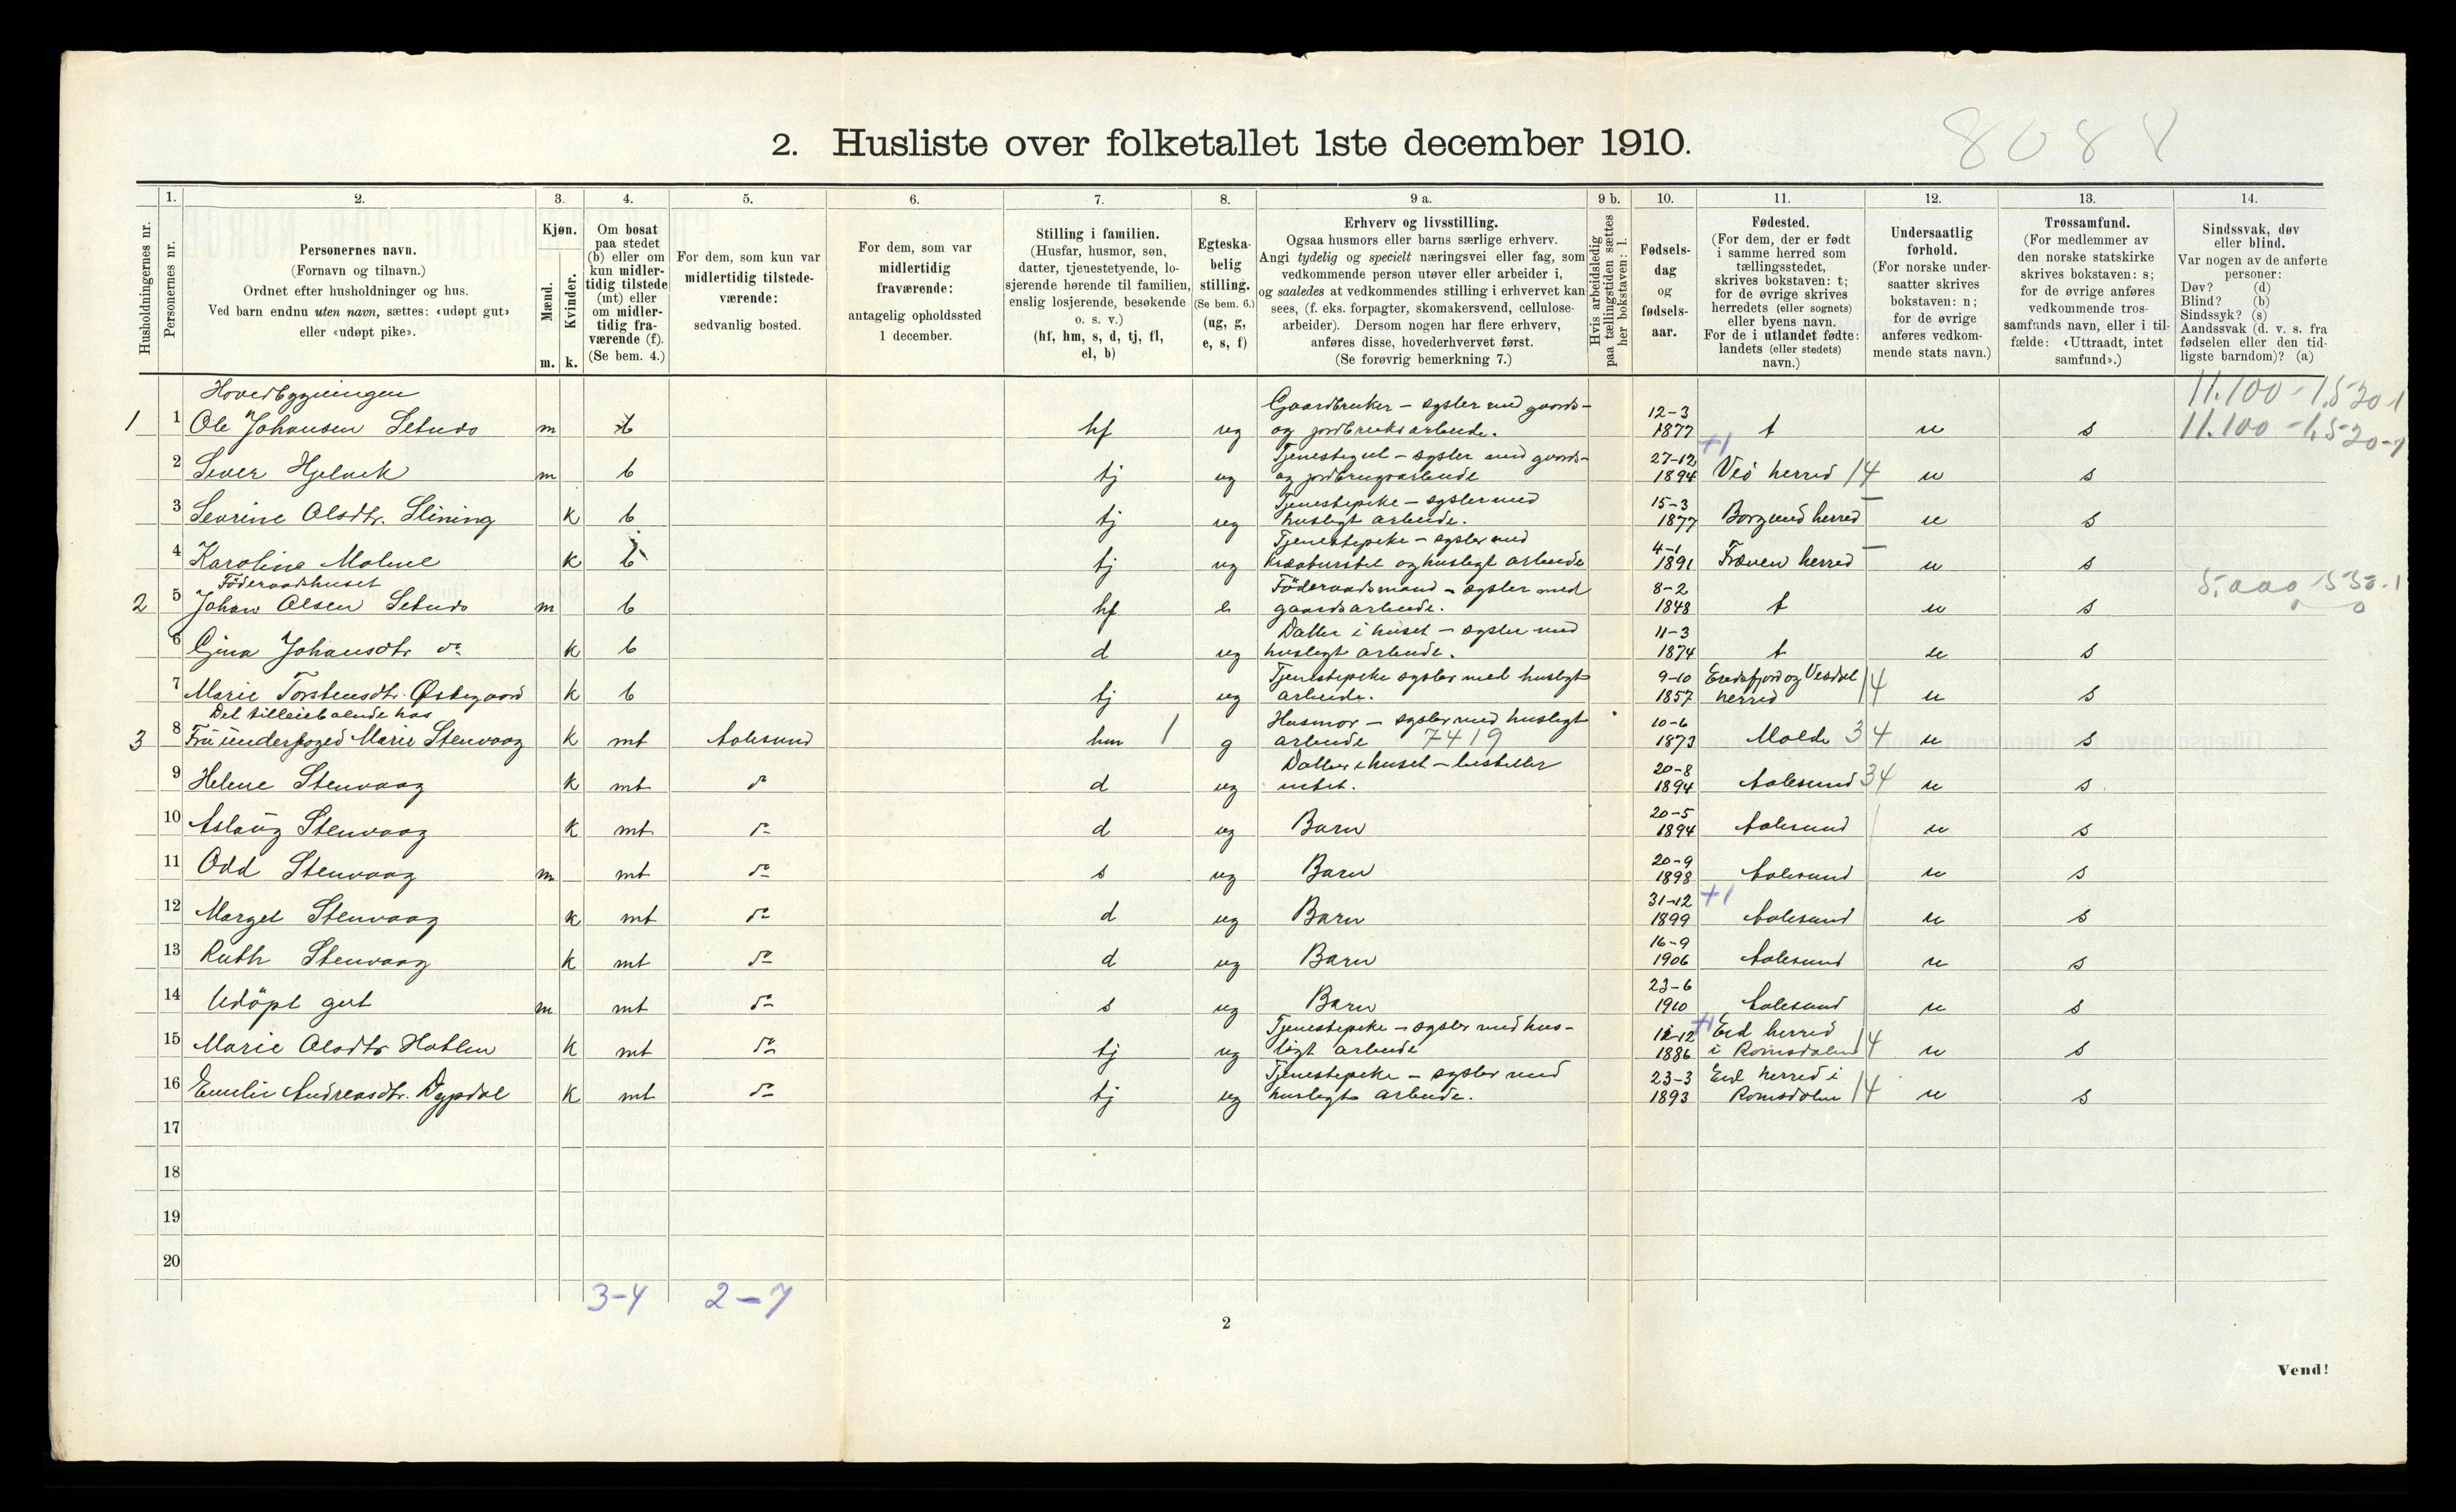 8084
2. Husliste over folketallet 1ste december 1910.
Husholdningernes nr.
1.
Personernes nr.
2.
Personernes navn.
(Fornavn og tilnavn.)
Ordnet efter husholdninger og hus.
Ved barn endnu uten navn, sættes: «udøpt gut»
eller «udøpt pike».
3.
Kjøn.
Mænd.
Kvinder.
m. k.
4.
Om bosat
paa stedet
(b) eller om
kun midler-
tidig tilstede
(mt) eller
om midler-
tidig fra-
værende (f).
(Se bem. 4.)
5.
For dem, som kun var
midlertidig tilstede-
værende:
sedvanlig bosted.
6.
For dem, som var
midlertidig
fraværende:
antagelig opholdssted
1 december.
7.
Stilling i familien.
(Husfar, husmor, søn,
datter, tjenestetyende, lo-
sjerende hørende til familien,
enslig losjerende, besøkende
o. s. v.)
(hf, hm, s, d, tj, fl,
el, b)
8.
Egteska-
belig
stilling.
(Se bem. 6.)
(ug, g,
e, s, f)
9 a.
Erhverv og livsstilling.
Ogsaa husmors eller barns særlige erhverv.
Angi tydelig og specielt næringsvei eller fag, som
vedkommende person utøver eller arbeider i,
og saaledes at vedkommendes stilling i erhvervet kan
sees, (f. eks. forpagter, skomakersvend, cellulose-
arbeider). Dersom nogen har flere erhverv,
anføres disse, hovederhvervet først.
(Se forøvrig bemerkning 7.)
9 b.
Hvis arbeidsledig
paa tællingstiden sættes
her bokstaven: l.
10.
Fødsels-
dag
og
fødsels-
aar.
11.
Fødested.
(For dem, der er født
i samme herred som
tællingsstedet,
skrives bokstaven: t;
for de øvrige skrives
herredets (eller sognets)
eller byens navn.
For de i utlandet fødte:
landets (eller stedets)
navn.)
12.
Undersaatlig
forhold.
(For norske under-
saatter skrives
bokstaven: n;
for de øvrige
anføres vedkom-
mende stats navn.)
13.
Trossamfund.
(For medlemmer av
den norske statskirke
skrives bokstaven: s;
for de øvrige anføres
vedkommende tros-
samfunds navn, eller i til-
fælde: «Uttraadt, intet
samfund».)
14.
Sindssvak, døv
eller blind.
Var nogen av de anførte
personer:
Døv? (d)
Blind? (b)
Sindssyk? (s)
Aandssvak (d. v. s. fra
fødselen eller den tid-
ligste barndom)? (a)
Hovedbygningen
11.100 - 1520-1
Gaardbruker - sysler med gaards-
12-3
1 1 Ole Johansen Setnes m b hf ug og jordbruksarbeide. 1877 t n s 11.100 - 1520-1
Tjenestegut - sysler med gaards-
27-12 +1
2 Sever Hjelvik m b tj ug og jordbrugsarbeide 1894 Veö herred 14 n s
Tjenestepike - sysler med
15-3
3 Sevrine Olsdtr. Slining k b tj ug husligt arbeide. 1877 Borgund herred n s
Tjenestepike - sysler med
4-1
4 Karoline Malme k b tj ug kreaturstel og husligt arbeide 1891 Fræven herred n s
Föderaadshuset
Föderaadsmand - sysler med
8-2
2 5 Johan Olsen Setnes m b hf e gaardsarbeide. 1848 t n s 5.000 530-1
Datter i huset - sysler med
11-3
6 Gina Johansdtr do k b d ug husligt arbeide. 1874 t n s
Tjenestepike sysler med husligt
9-10 Eredsfjord og Vesdal
7 Marie Torstensdtr. Østegaard k b tj ug arbeide. 1857 herred 14 n s
Det tilleieboende hos
Husmor - sysler med husligt
10-6
3 8 Fru underfoged Marie Stenvaag k mt Aalesund hm 1 g arbeide 7419 1873 Molde 34 n s
Datter i huset - bestiller
20-8
9 Helene Stenvaag k mt do d ug intet. 1894 Aalesund 34 n s
20-5
10 Aslaug Stenvaag k mt do d ug Barn 1894 Aalesund n s
20-9
11 Odd Stenvaag m mt do s ug Barn 1898 Aalesund n s
31-12 +1
12 Margel Stenvaag k mt do d ug Barn 1899 Aalesund n s
16-9
13 Ruth Stenvaag k mt do d ug Barn 1906 Aalesund n s
23-6
14 Udöpt gut m mt do s ug Barn 1910 Aalesund n s
Tjenestepike - sysler med hus-
12-12 +1 Eid herred
15 Marie Olsdtr Hatlen k mt do tj ug ligt arbeide 1886 i Romsdalen 14 n s
Tjenestepike - sysler med
23-3 Eid herred i
16 Emilie Andreasdtr. Dypdal k mt do tj ug husligt arbeide. 1893 Romsdalen 14 n s
17
18
19
20
3-4 2-7
2
Vend!